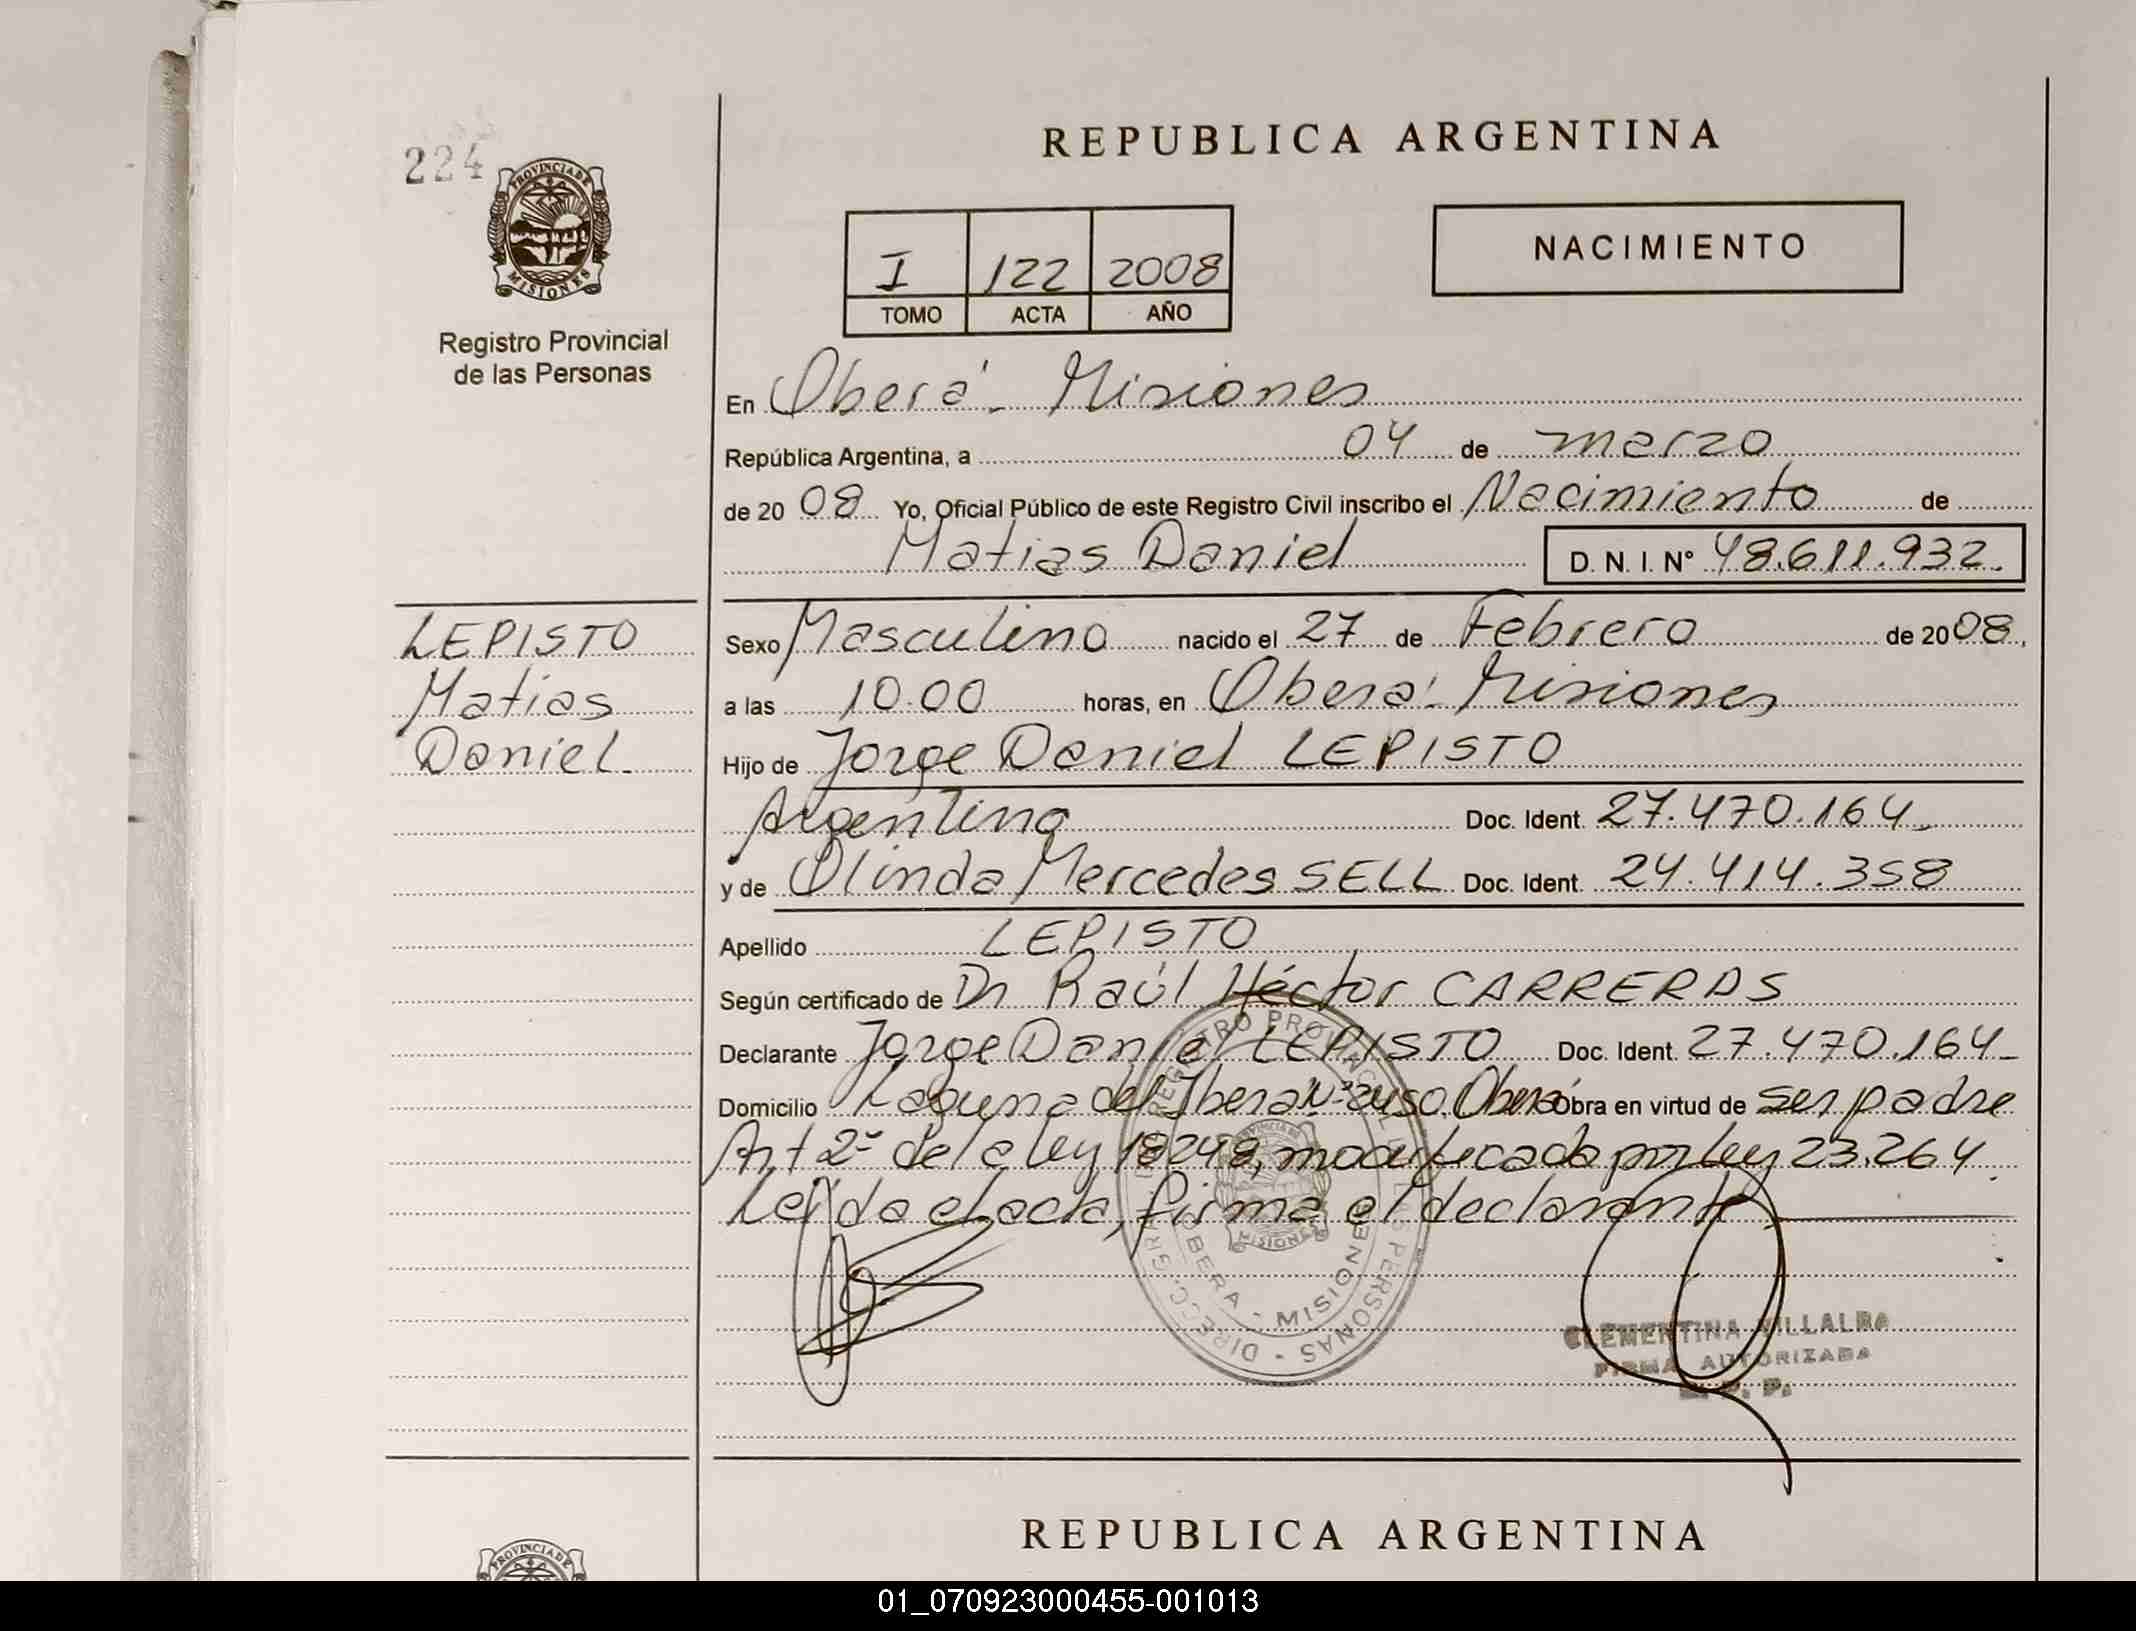 224
PROVINCIA DE
MISIONES
Registro Provincial
de las Personas
REPUBLICA ARGENTINA
I 122 2008
TOMO ACTA AÑO
NACIMIENTO
En Oberá - Misiones
República Argentina, a 04 de marzo
de 20 08 Yo, Oficial Público de este Registro Civil inscribo el Nacimiento de
Matias Daniel D. N. I. N° 48.611.932.
LEPISTO
Matias
Daniel.
Sexo Masculino nacido el 27 de Febrero de 20 08,
a las 10.00 horas, en Oberá - Misiones
Hijo de Jorge Daniel LEPISTO
Argentino Doc. Ident. 27.470.164-
y de Olinda Mercedes SELL Doc. Ident. 24.414.358
Apellido LEPISTO
Según certificado de Dr Raúl Héctor CARRERAS
Declarante Jorge Daniel LEPISTO Doc. Ident. 27.470.164-
Domicilio Laguna del Ibera Oberá Obra en virtud de ser padre
Art 2º de la ley 18248, modificada por ley 23.264
Leída el acta, firma el declarante
REGISTRO PROVINCIAL DE LAS PERSONAS - DIRECC. GRAL.
OBERA - MISIONES
MISIONES
CLEMENTINA VILLALBA
FIRMA AUTORIZADA
R. P. P.
REPUBLICA ARGENTINA
PROVINCIA DE
01_070923000455-001013